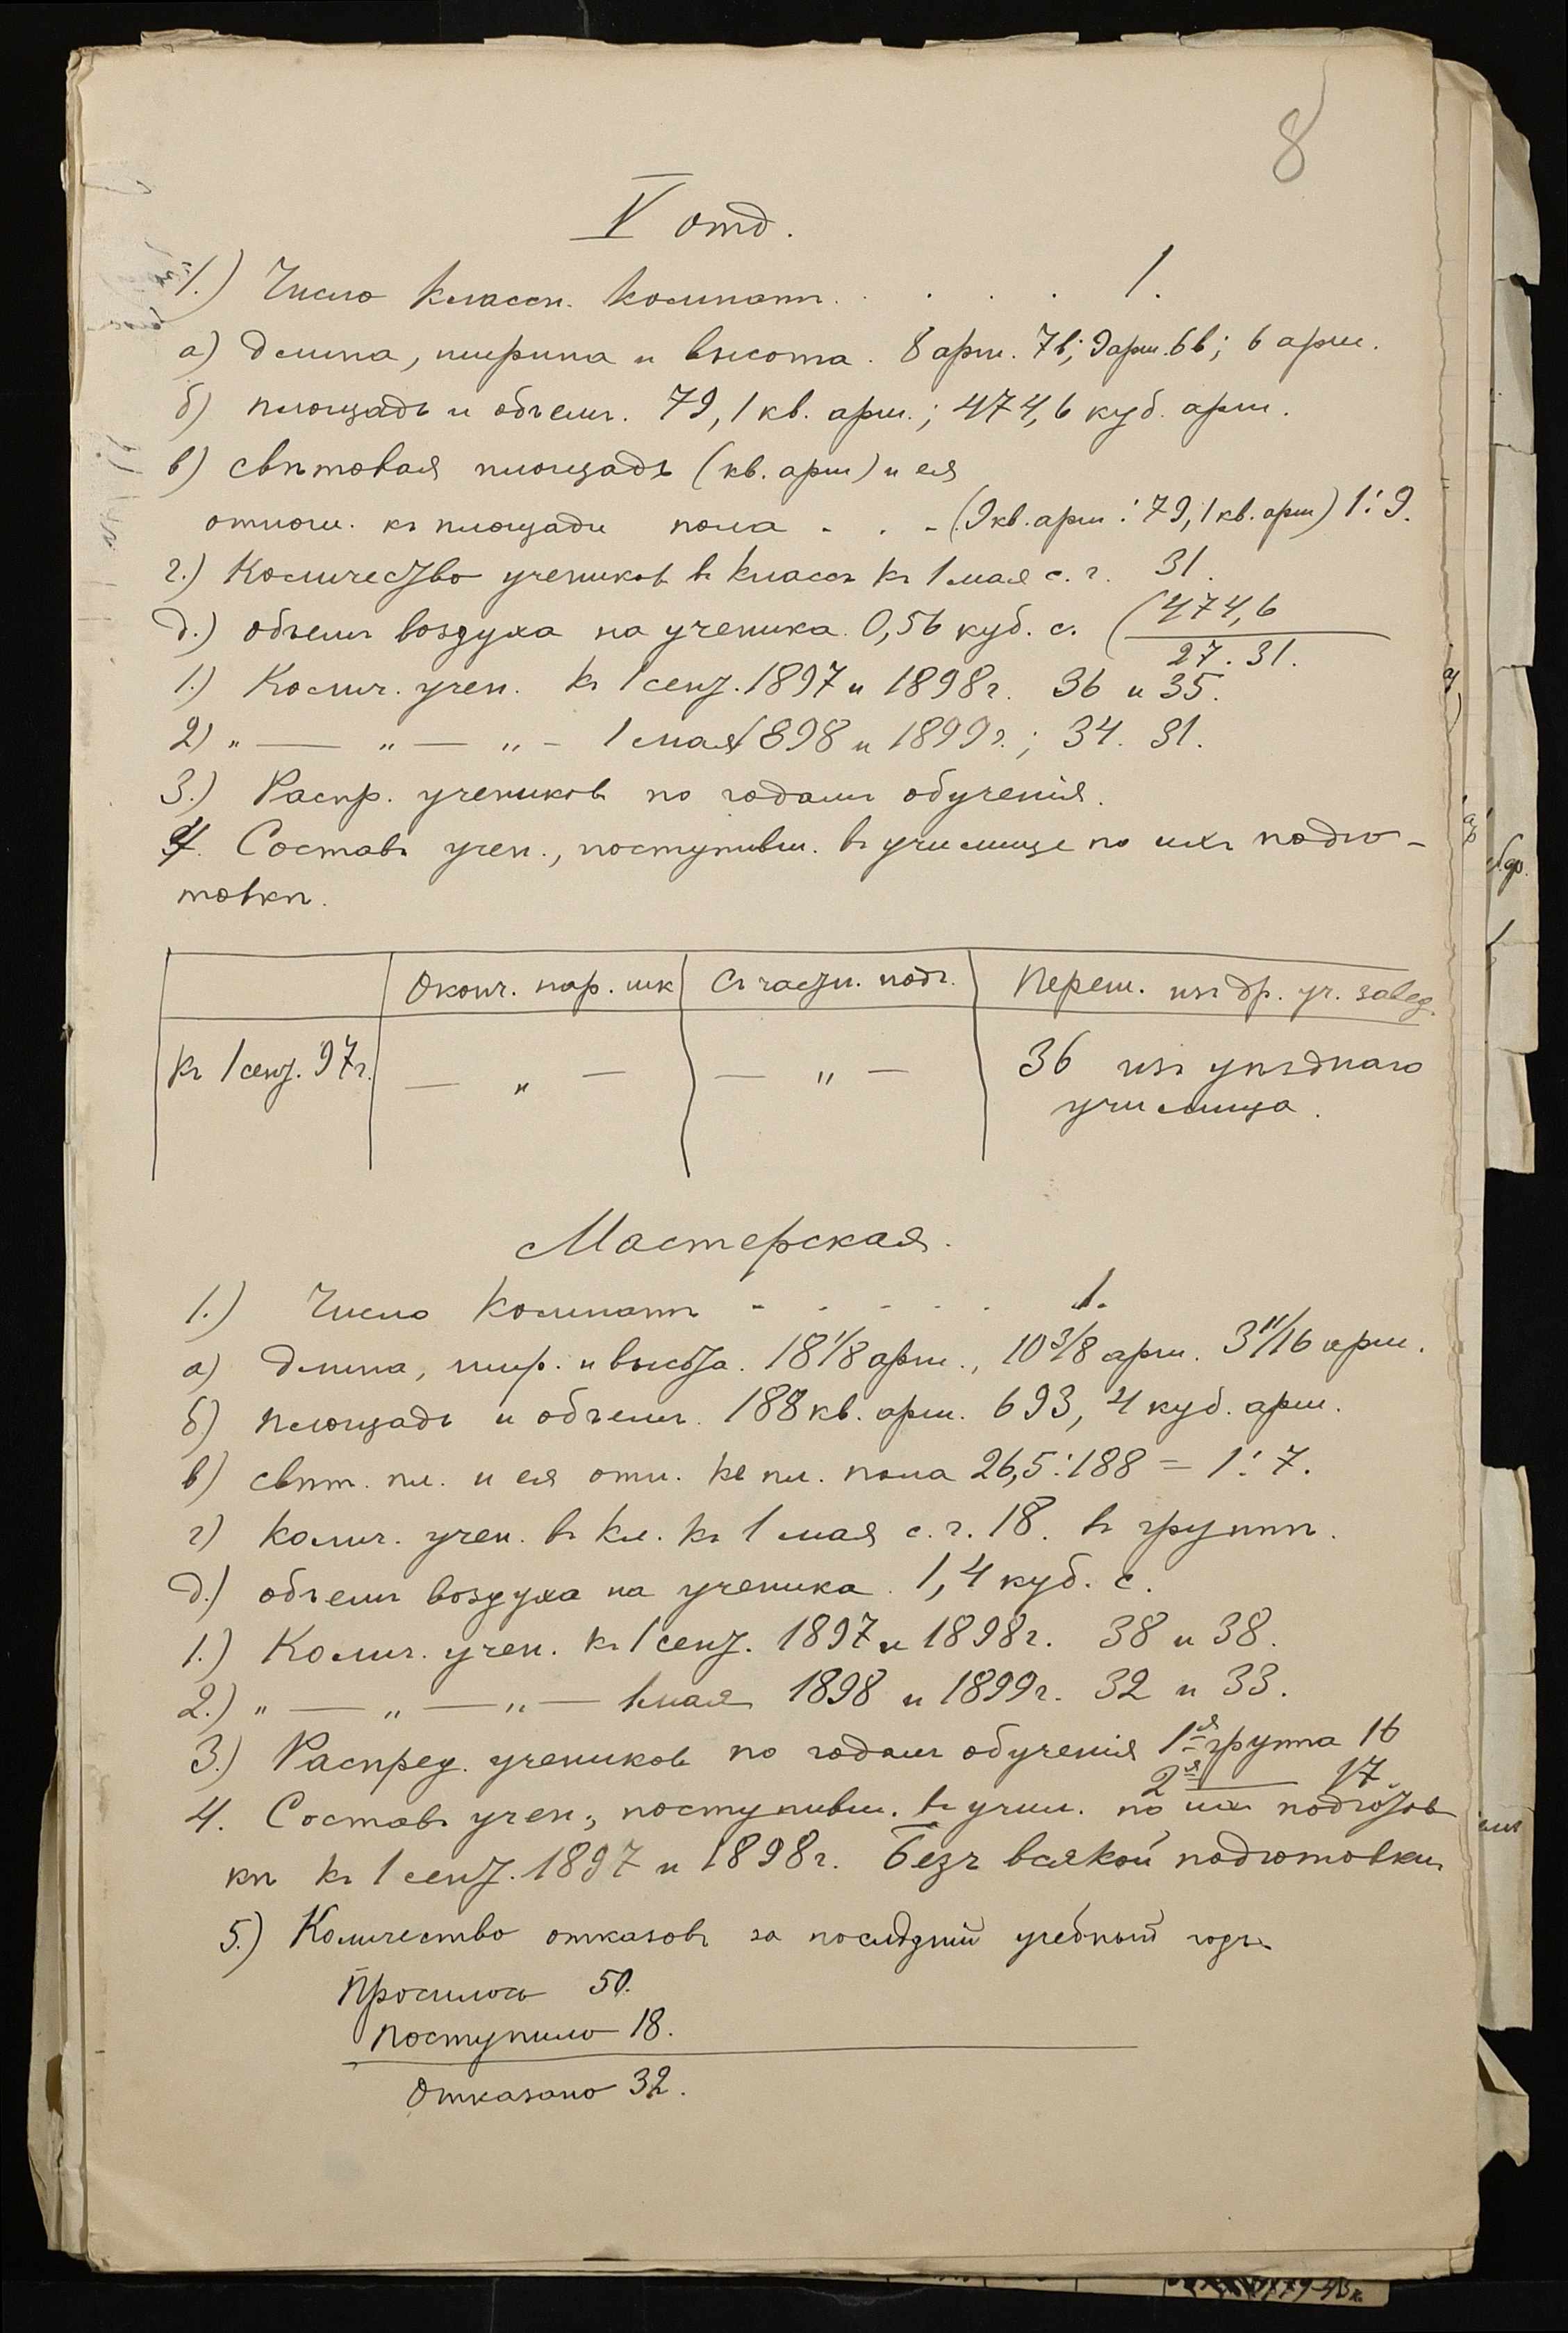 8
V отд.
1.) Число классн. комнатъ . . . . 1.
а) длина, ширина и высота. 8 арш. 7в; 9 арш. 6в; 6 арш.
б) площадь и объемъ. 79,1 кв. арш.; 474,6 куб. арш.
в) свѣтовая площадь (кв. арш) и ея
относ. къ площади пола . . - (9 кв. арш : 79,1 кв. арш) 1:9.
г.) Количество учениковъ въ классѣ къ 1 мая с. г. 31.
д.) объемъ воздуха на ученика. 0,56 куб. с. (474,6
27. 31.
1.) Колич. учен. къ 1 сент. 1897 и 1898 г. 36 и 35.
2) „ — „ — „ - 1 мая 1898 и 1899 г.; 34. 31.
3.) Распр. учениковъ по годамъ обученія.
4. Составъ учен., поступивш. въ училище по ихъ подго-
товкѣ.
Оконч. нар. шк. Съ частн. подг. Переш. изъ др. уч. завед.
Къ 1 сент. 97 г. — „ — — „ — 36 изъ уѣзднаго
училища.
Мастерская.
1.) Число комнатъ - . - . . 1.
а) длина, шир. и высота. 18 1/8 арш., 10 3/8 арш. 3 11/16 арш.
б) площадь и объемъ. 188 кв. арш. 693,4 куб. арш.
в) свѣт. пл. и ея отн. къ пл. пола 26,5:188 = 1:7.
г) колич. учен. въ кл. къ 1 мая с. г. 18. въ группѣ.
д.) объемъ воздуха на ученика. 1,4 куб. с.
1.) Колич. учен. къ 1 сент. 1897 и 1898 г. 38 и 38.
2.) „ — „ — „ — 1 мая 1898 и 1899 г. 32 и 33.
3.) Распред. учениковъ по годамъ обученія 1я группа 16
2я — 17.
4. Составъ учен., поступивш. въ учил. по ихъ подготов
кѣ къ 1 сент. 1897 и 1898 г. Безъ всякой подготовки
5.) Количество отказовъ за послѣдній учебный годъ.
Просилось 50.
Поступило 18.
Отказано 32.